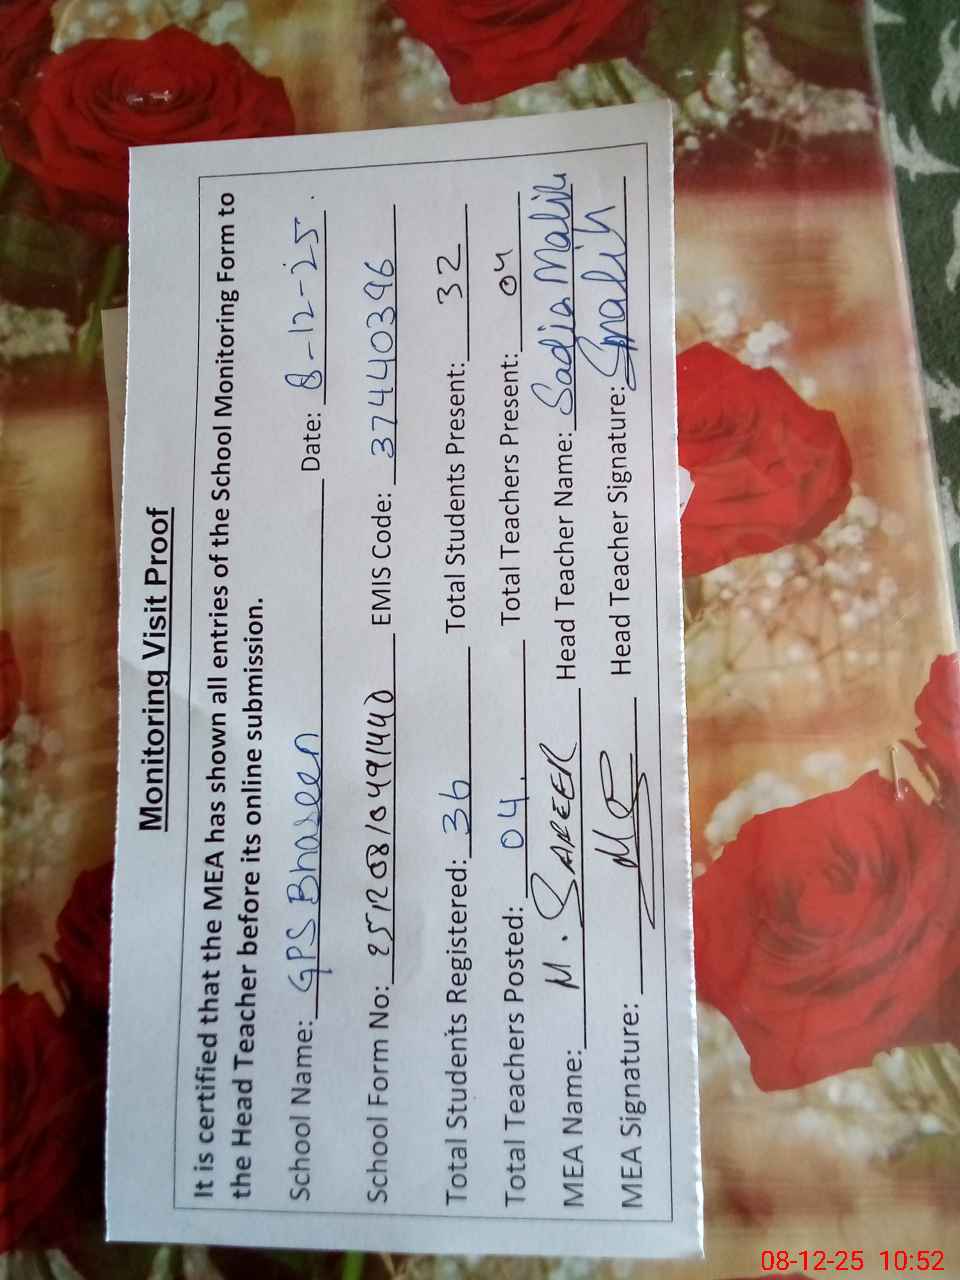 Monitoring Visit Proof
It is certified that the MEA has shown all entries of the School Monitoring Form to
the Head Teacher before its online submission.
School Name: GPS Bhaseen Date: 8-12-25.
School Form No: EMIS Code: 37440396
Total Students Registered: 36 Total Students Present: 32
Total Teachers Posted: 04 Total Teachers Present: 04
MEA Name: M. Head Teacher Name: Sadia Malik
MEA Signature: Head Teacher Signature: Smalik
08-12-25 10:52